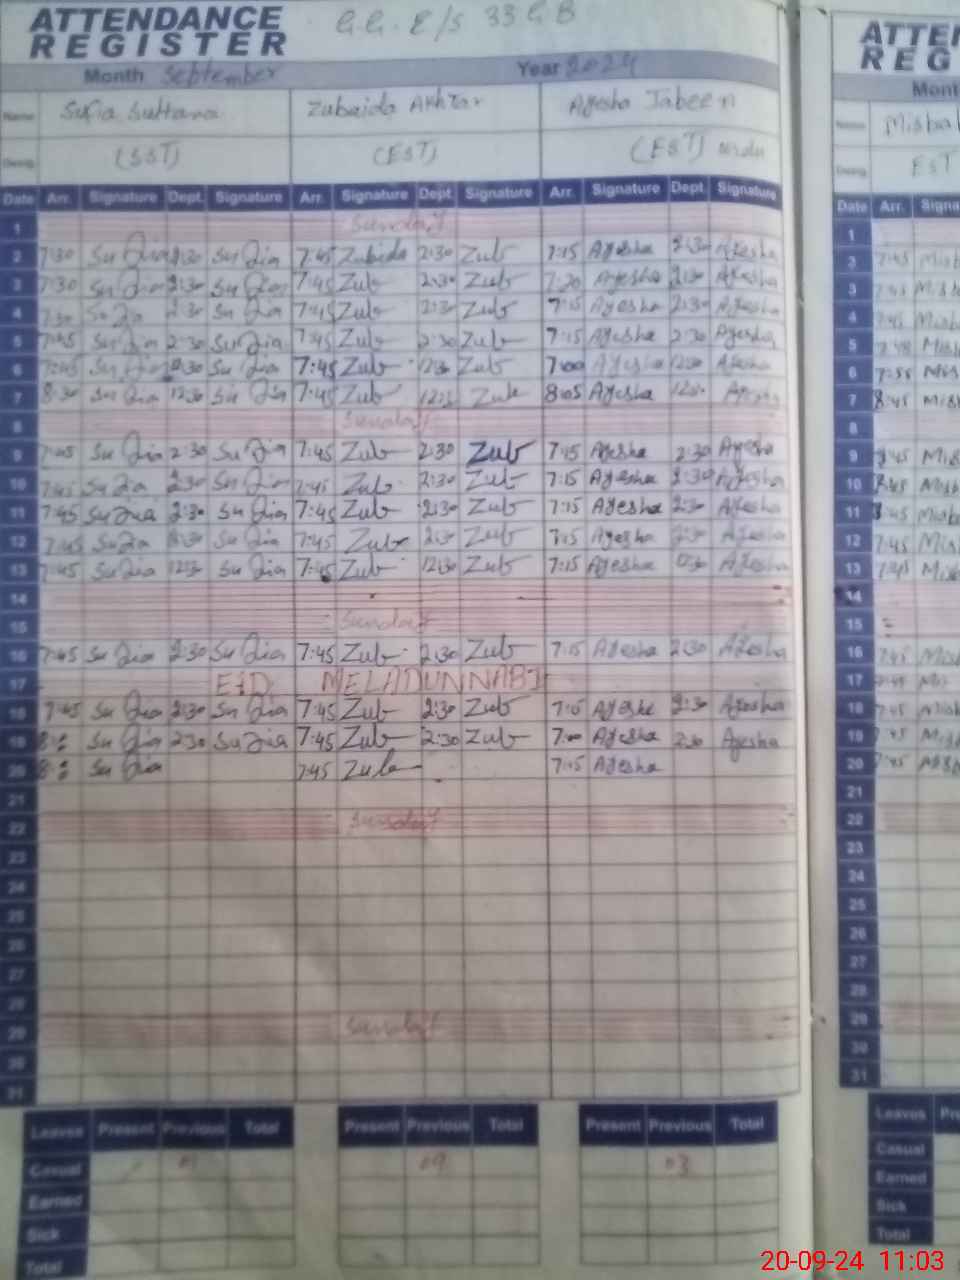 ATTENDANCE
REGISTER
G.G. E/S 33 G B
Month September Year 2024
Name Sufia Sultana Zubaida Akhtar Ayesha Jabeen
Desig. (SST) (EST) (EST) urdu
Date Arr. Signature Dept. Signature Arr. Signature Dept. Signature Arr. Signature Dept. Signature
1 Sunday
2 7:30 Sufia 2:30 Sufia 7:45 Zubida 2:30 Zub 7:15 Ayesha 2:30 Ayesha
3 7:30 Sufia 2:30 Sufia 7:45 Zub 2:30 Zub 7:20 Ayesha 2:30 Ayesha
4 7:30 Sufia 2:30 Sufia 7:45 Zub 2:30 Zub 7:15 Ayesha 2:30 Ayesha
5 7:45 Sufia 2:30 Sufia 7:45 Zub 2:30 Zub 7:15 Ayesha 2:30 Ayesha
6 7:45 Sufia Sufia 7:45 Zub 12:30 Zub 7:00 Ayesha 12:30 Ayesha
7 8:30 Sufia 12:30 Sufia 7:45 Zub Zub 8:05 Ayesha Ayesha
8 Sunday
9 7:45 Sufia 2:30 Sufia 7:45 Zub 2:30 Zub 7:15 Ayesha 2:30 Ayesha
10 7:45 Sufia 2:30 Sufia 7:45 Zub 2:30 Zub 7:15 Ayesha 2:30 Ayesha
11 7:45 Sufia 2:30 Sufia 7:45 Zub 2:30 Zub 7:15 Ayesha 2:30 Ayesha
12 7:45 Sufia Sufia 7:45 Zub 2:30 Zub 7:15 Ayesha 2:30 Ayesha
13 7:45 Sufia 12:30 Sufia 7:45 Zub 12:30 Zub 7:15 Ayesha Ayesha
14
15 Sunday
16 7:45 Sufia 2:30 Sufia 7:45 Zub 2:30 Zub 7:15 Ayesha 2:30 Ayesha
17 EID MELADUNNABI
18 7:45 Sufia 2:30 Sufia 7:45 Zub 2:30 Zub 7:15 Ayesha 2:30 Ayesha
19 Sufia 2:30 Sufia 7:45 Zub 2:30 Zub 7:00 Ayesha 2:30 Ayesha
20 Sufia 7:45 Zub 7:15 Ayesha
21
22 Sunday
23
24
25
26
27
28
29 Sunday
30
31
Leaves Present Previous Total Present Previous Total Present Previous Total
Casual 09 03
Earned
Sick
Total
ATTEN
REG
Month
Name Misba
Desig. EST
Date Arr. Signa
1
2 7:45 Misb
3 7:45 Misb
4 7:45 Misba
5 Mis
6 7:55 Mis
7 8:45 Mis
8
9 7:45 Mis
10 Misb
11 7:45 Misb
12 7:45 Mis
13 7:45 Mis
14
15
16 7:45 Misb
17
18 7:45 Misb
19 7:45 Misb
20 7:45 Misb
21
22
23
24
25
26
27
28
29
30
31
Leaves Pre
Casual
Earned
Sick
Total
20-09-24 11:03